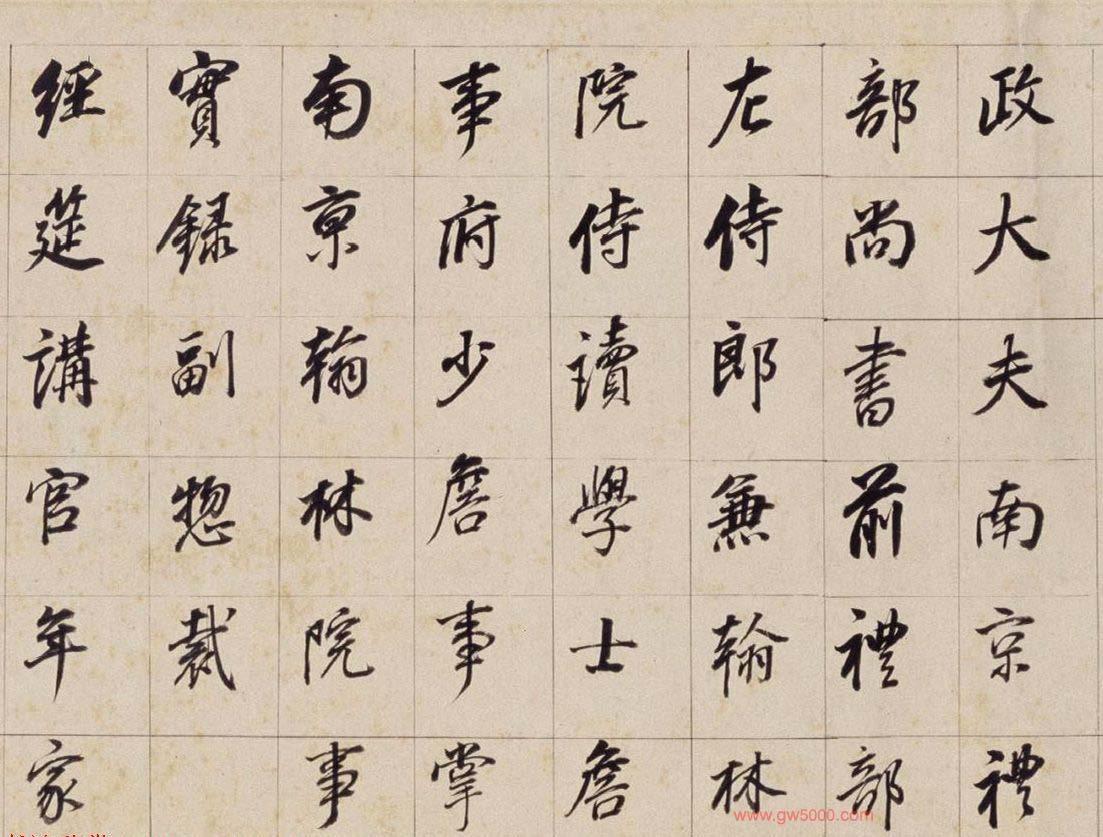 政大夫南京禮
部尚書前禮部
左侍郎兼翰林
院侍讀學士詹
事府少詹事掌
南京翰林院事
實録副惣裁
經筵講官年家
www.gw5000.com